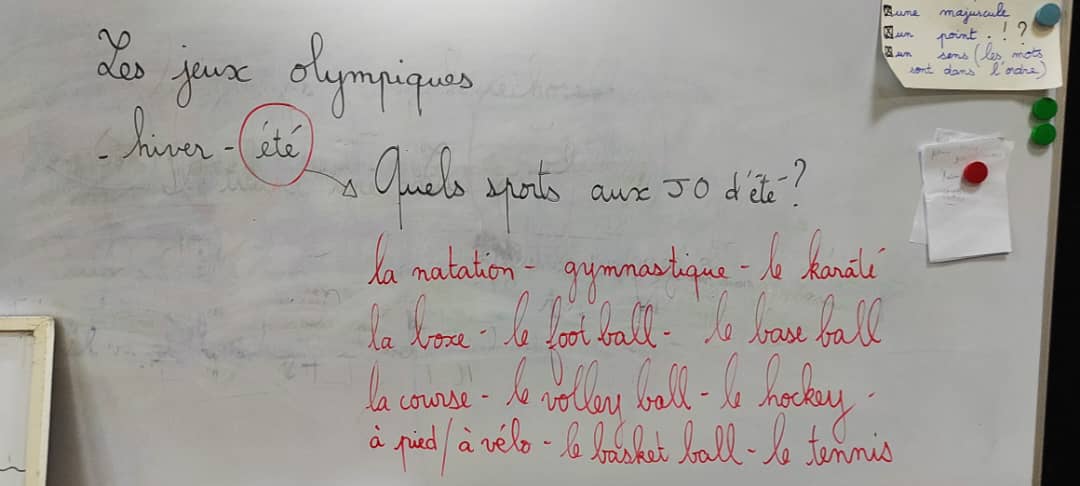 Les jeux olympiques
- hiver - été
Quels sports aux JO d'été ?
la natation - gymnastique - le karaté
la boxe - le foot ball - le base ball
la course - le volley ball - le hockey -
à pied / à vélo - le basket ball - le tennis
une majuscule
un point . ! ?
un sens (les mots
sont dans l'ordre)